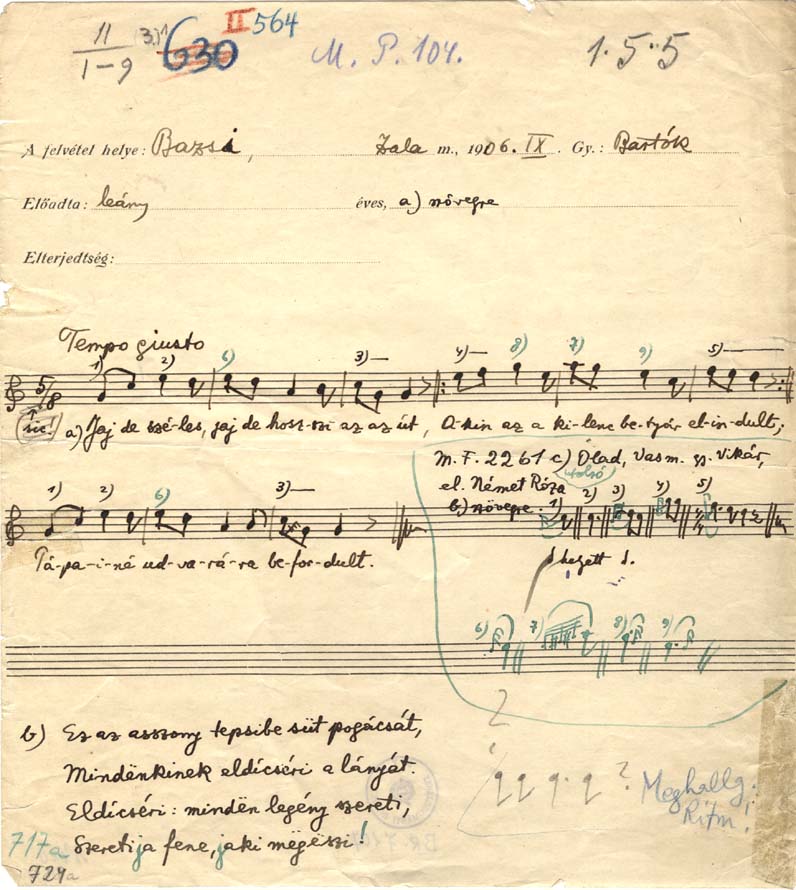 11
1-9
(3.)1
630
II 564
M. P. 104.
1. 5. 5
A felvétel helye: Bazsi, Zala m., 1906. IX. Gy.: Bartók
Előadta: leány éves, a) szövegre
Elterjedtség:
Tempo giusto
1) 2) 6) 3) 4) 8) 7) 9) 5)
5/8
sic!
a) Jaj de szé-les, jaj de hosz-szi az az út, A-kin az a ki-lenc be-tyár el-in-dult;
M. F. 2261 c) Olad, Vas m. gy. Vikár,
utolsó
el. Német Róza
b) szövegre. 1) 2) 3) 4) 5)
1) 2) 6) 3)
Tá-pa-i-né ud-va-rá-ra be-for-dult.
helyett
6) 7) 8) 9)
b) Ez az asszony tepsibe süt pogácsát,
Mindënkinek eldícséri a lányát.
Eldícséri: mindën legény szereti,
Szereti ja fene, jaki mëgëszi!
?
Meghallg.
Ritm!
717a
724a